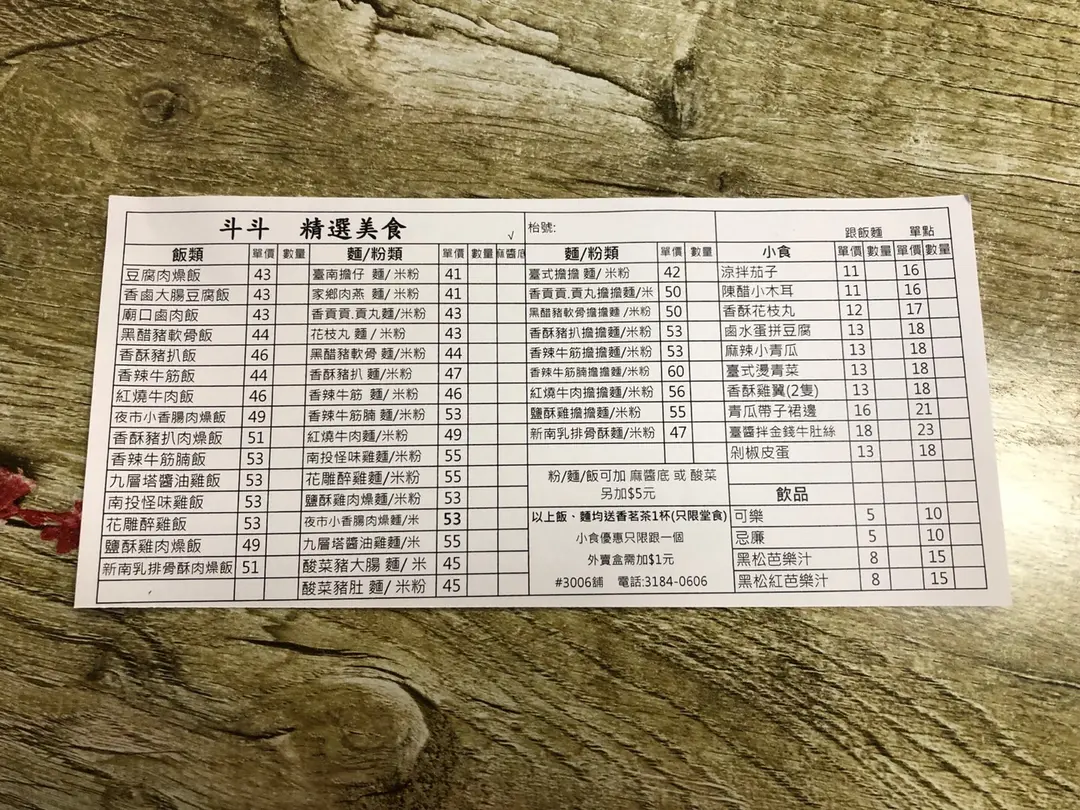 斗斗 精選美食 √ 枱號: 跟飯麵 單點
飯類 單價 數量 麵/粉類 單價 數量 麻醬底 麵/粉類 單價 數量 小食 單價 數量 單價 數量
豆腐肉燥飯 43 臺南擔仔 麵/ 米粉 41 臺式擔擔 麵/ 米粉 42 涼拌茄子 11 16
香鹵大腸豆腐飯 43 家鄉肉燕 麵/ 米粉 41 香貢貢.貢丸擔擔麵/米 50 陳醋小木耳 11 16
廟口鹵肉飯 43 香貢貢.貢丸麵/米粉 43 黑醋豬軟骨擔擔麵/ 米粉 50 香酥花枝丸 12 17
黑醋豬軟骨飯 44 花枝丸 麵 / 米粉 43 香酥豬扒擔擔麵/米粉 53 鹵水蛋拼豆腐 13 18
香酥豬扒飯 46 黑醋豬軟骨 麵/米粉 44 香辣牛筋擔擔麵/米粉 53 麻辣小青瓜 13 18
香辣牛筋飯 44 香酥豬扒 麵/米粉 47 香辣牛筋腩擔擔麵/米粉 60 臺式燙青菜 13 18
紅燒牛肉飯 46 香辣牛筋 麵/ 米粉 46 紅燒牛肉擔擔麵/米粉 56 香酥雞翼(2隻) 13 18
夜市小香腸肉燥飯 49 香辣牛筋腩 麵/米粉 53 鹽酥雞擔擔麵/米粉 55 青瓜帶子裙邊 16 21
香酥豬扒肉燥飯 51 紅燒牛肉麵/米粉 49 新南乳排骨酥麵/米粉 47 臺醬拌金錢牛肚絲 18 23
香辣牛筋腩飯 53 南投怪味麵/米粉 55 剁椒皮蛋 13 18
九層塔醬油雞飯 53 花雕醉雞麵/米粉 55 粉/麵/飯可加 麻醬底 或 酸菜
南投怪味雞飯 53 鹽酥雞肉燥麵/米粉 53 另加$5元 飲品
花雕醉雞飯 53 夜市小香腸肉燥麵/米 53 以上飯、麵均送香茗茶1杯(只限堂食) 可樂 5 10
鹽酥雞肉燥飯 49 九層塔醬油雞麵/米 55 小食優惠只限跟一個 忌廉 5 10
新南乳排骨酥肉燥飯 51 酸菜豬大腸 麵/ 米 45 外賣盒需加$1元 黑松芭樂汁 8 15
酸菜豬肚 麵/ 米粉 45 #3006舖 電話:3184-0606 黑松紅芭樂汁 8 15